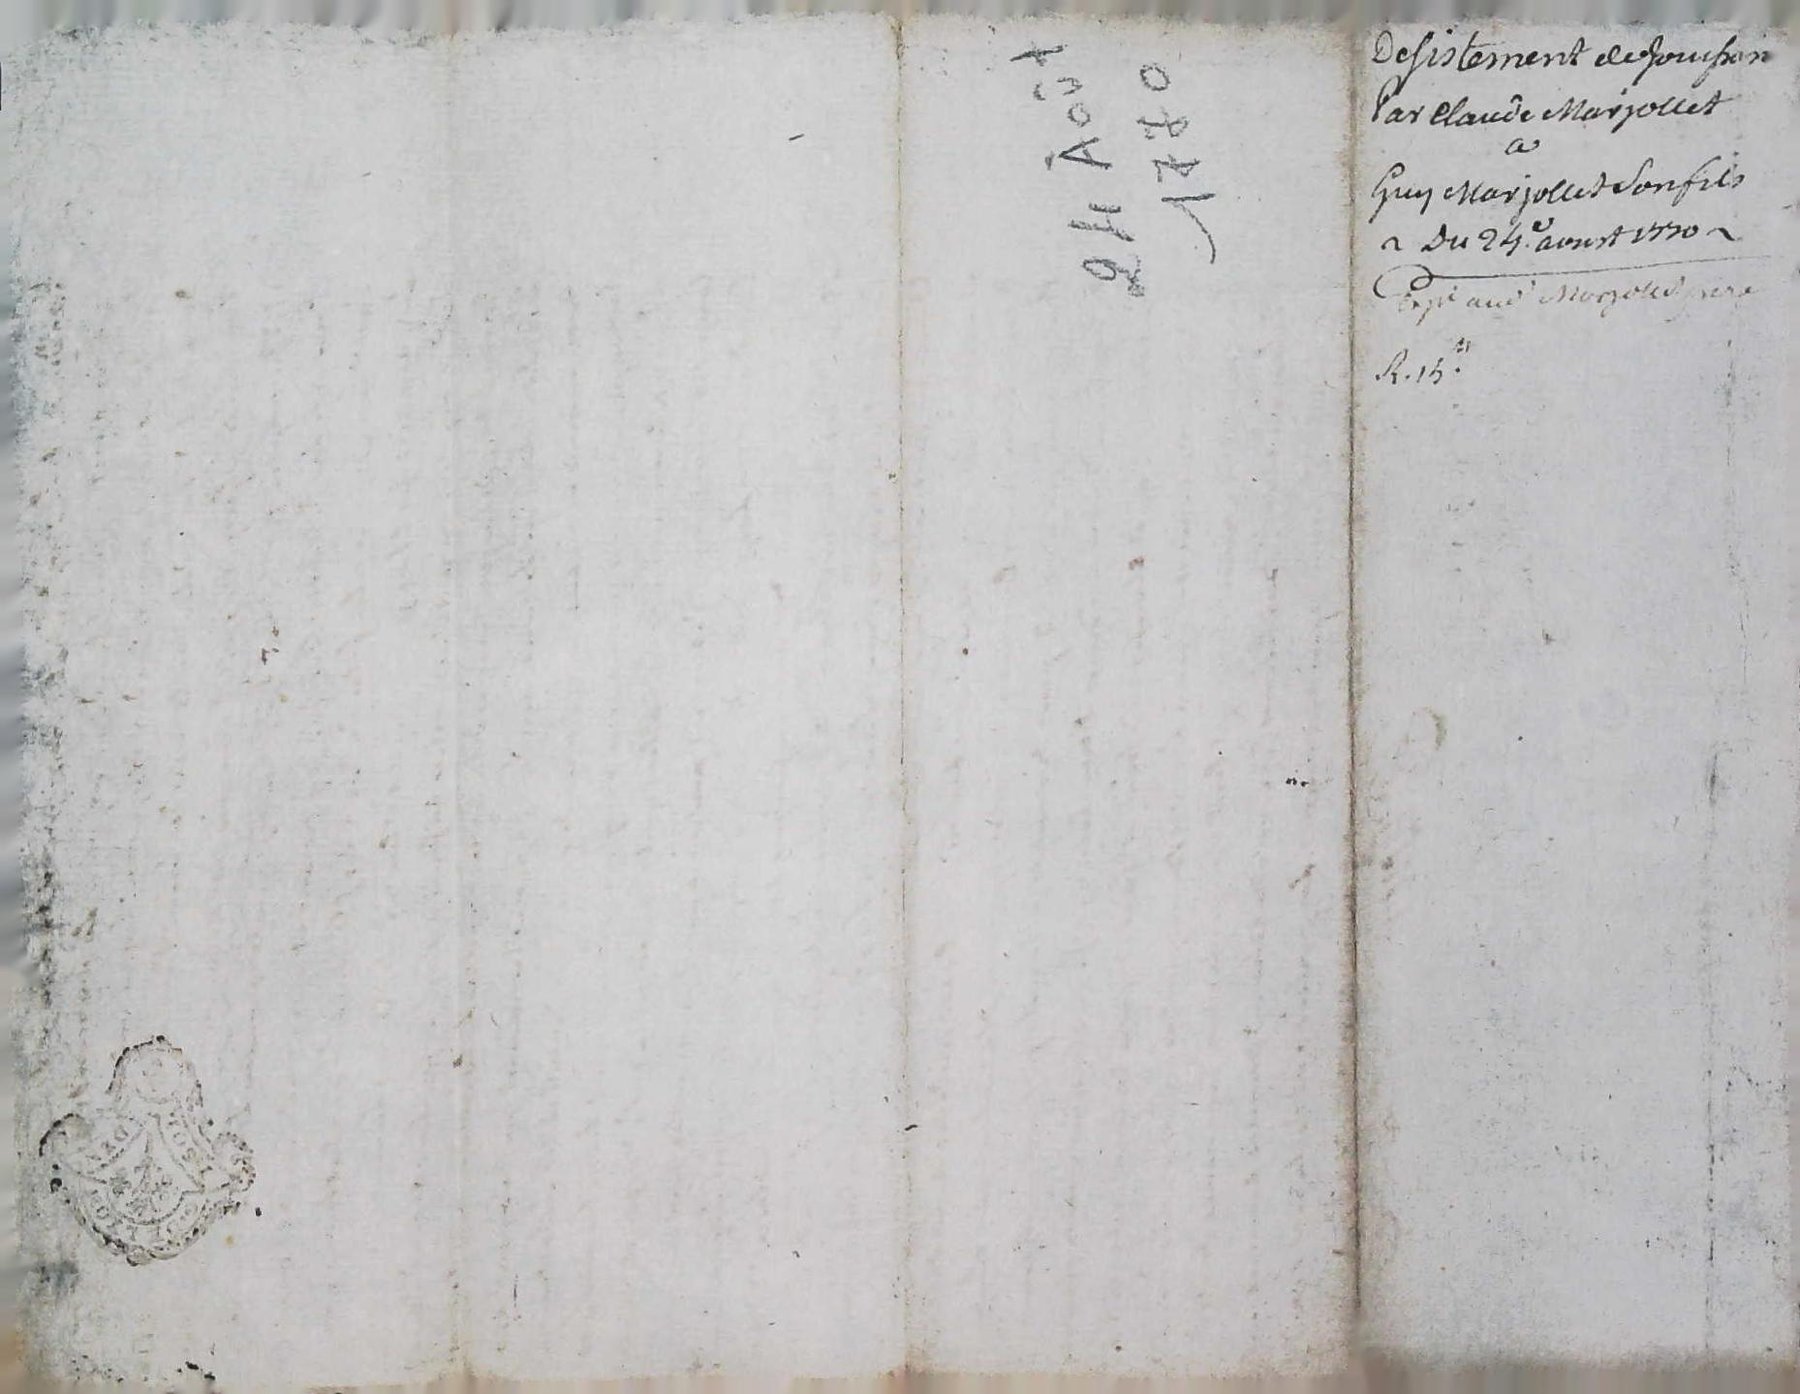 24 Aost
1780
Desistement de Jouissan
Par Claude Marjollet
a
Guy Marjollet Son fils
~ Du 24.e aoust 1770 ~
Expé aud Marjollet pere
R. 15.s